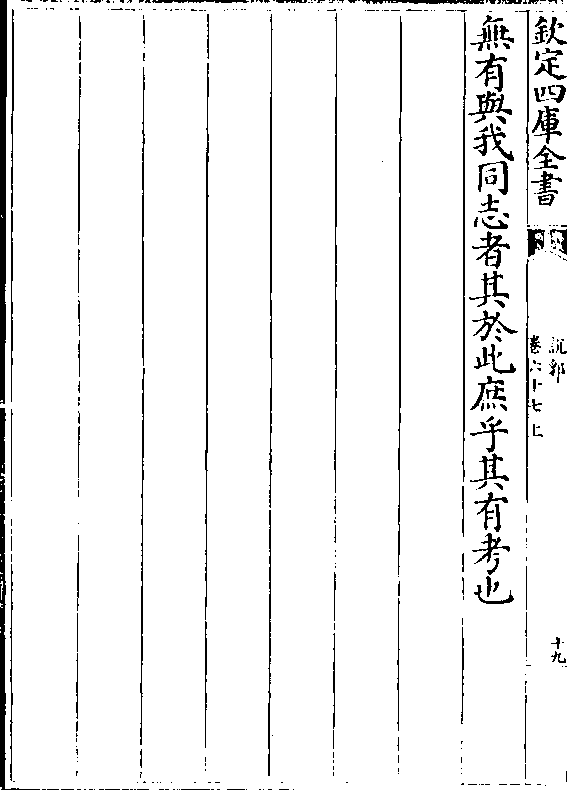 欽定四庫全書
說郛
卷六十七上
十九
無有與我同志者其於此庶乎其有考也